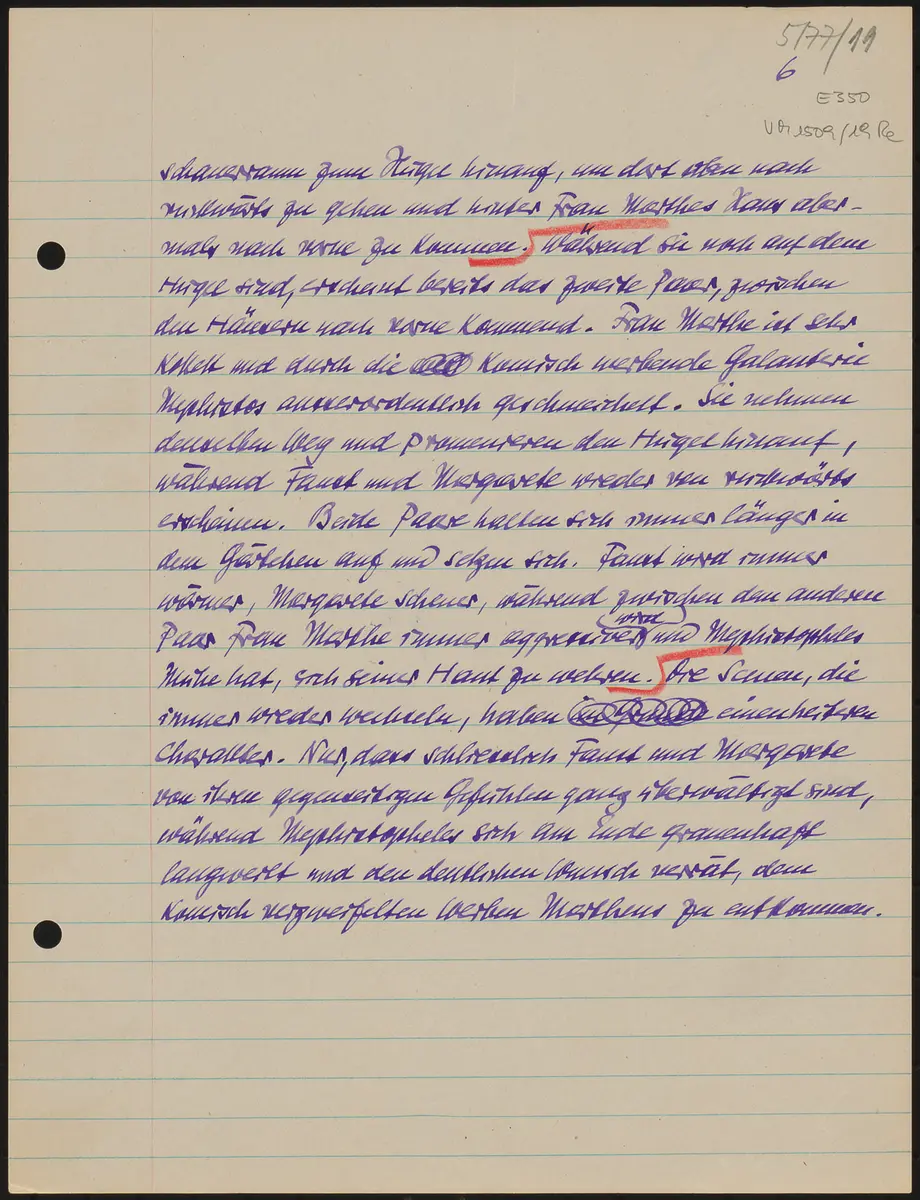 5/77/19
6
E350
VM 1509/19 Re
schauerraum zum Hügel hinauf, um dort oben nach
rückwärts zu gehen und hinter Frau Marthes Haus aber-
mals nach vorne zu kommen. Während sie noch auf dem
Hügel sind, erscheint bereits das zweite Paar, zwischen
den Häusern nach vorne kommend. Frau Marthe ist sehr
kokett und durch die komisch werbende Galanterie
Mephistos ausserordentlich geschmeichelt. Sie nehmen
denselben Weg und promenieren den Hügel hinauf,
während Faust und Margarete wieder von rückwärts
erscheinen. Beide Paare halten sich immer länger in
dem Gärtchen auf und setzen sich. Faust wird immer
wärmer, Margarete scheuer, während zwischen dem anderen
Paar Frau Marthe immer aggressiver wird und Mephistopheles
Mühe hat, sich seiner Haut zu wehren. Die Scenen, die
immer wieder wechseln, haben einen heiteren
Charakter. Nur, dass schliesslich Faust und Margarete
von ihren gegenseitigen Gefühlen ganz überwältigt sind,
während Mephistopheles sich am Ende grauenhaft
langweilt und den deutlichen Wunsch verrät, dem
komisch verzweifelten Werben Marthens zu entkommen.